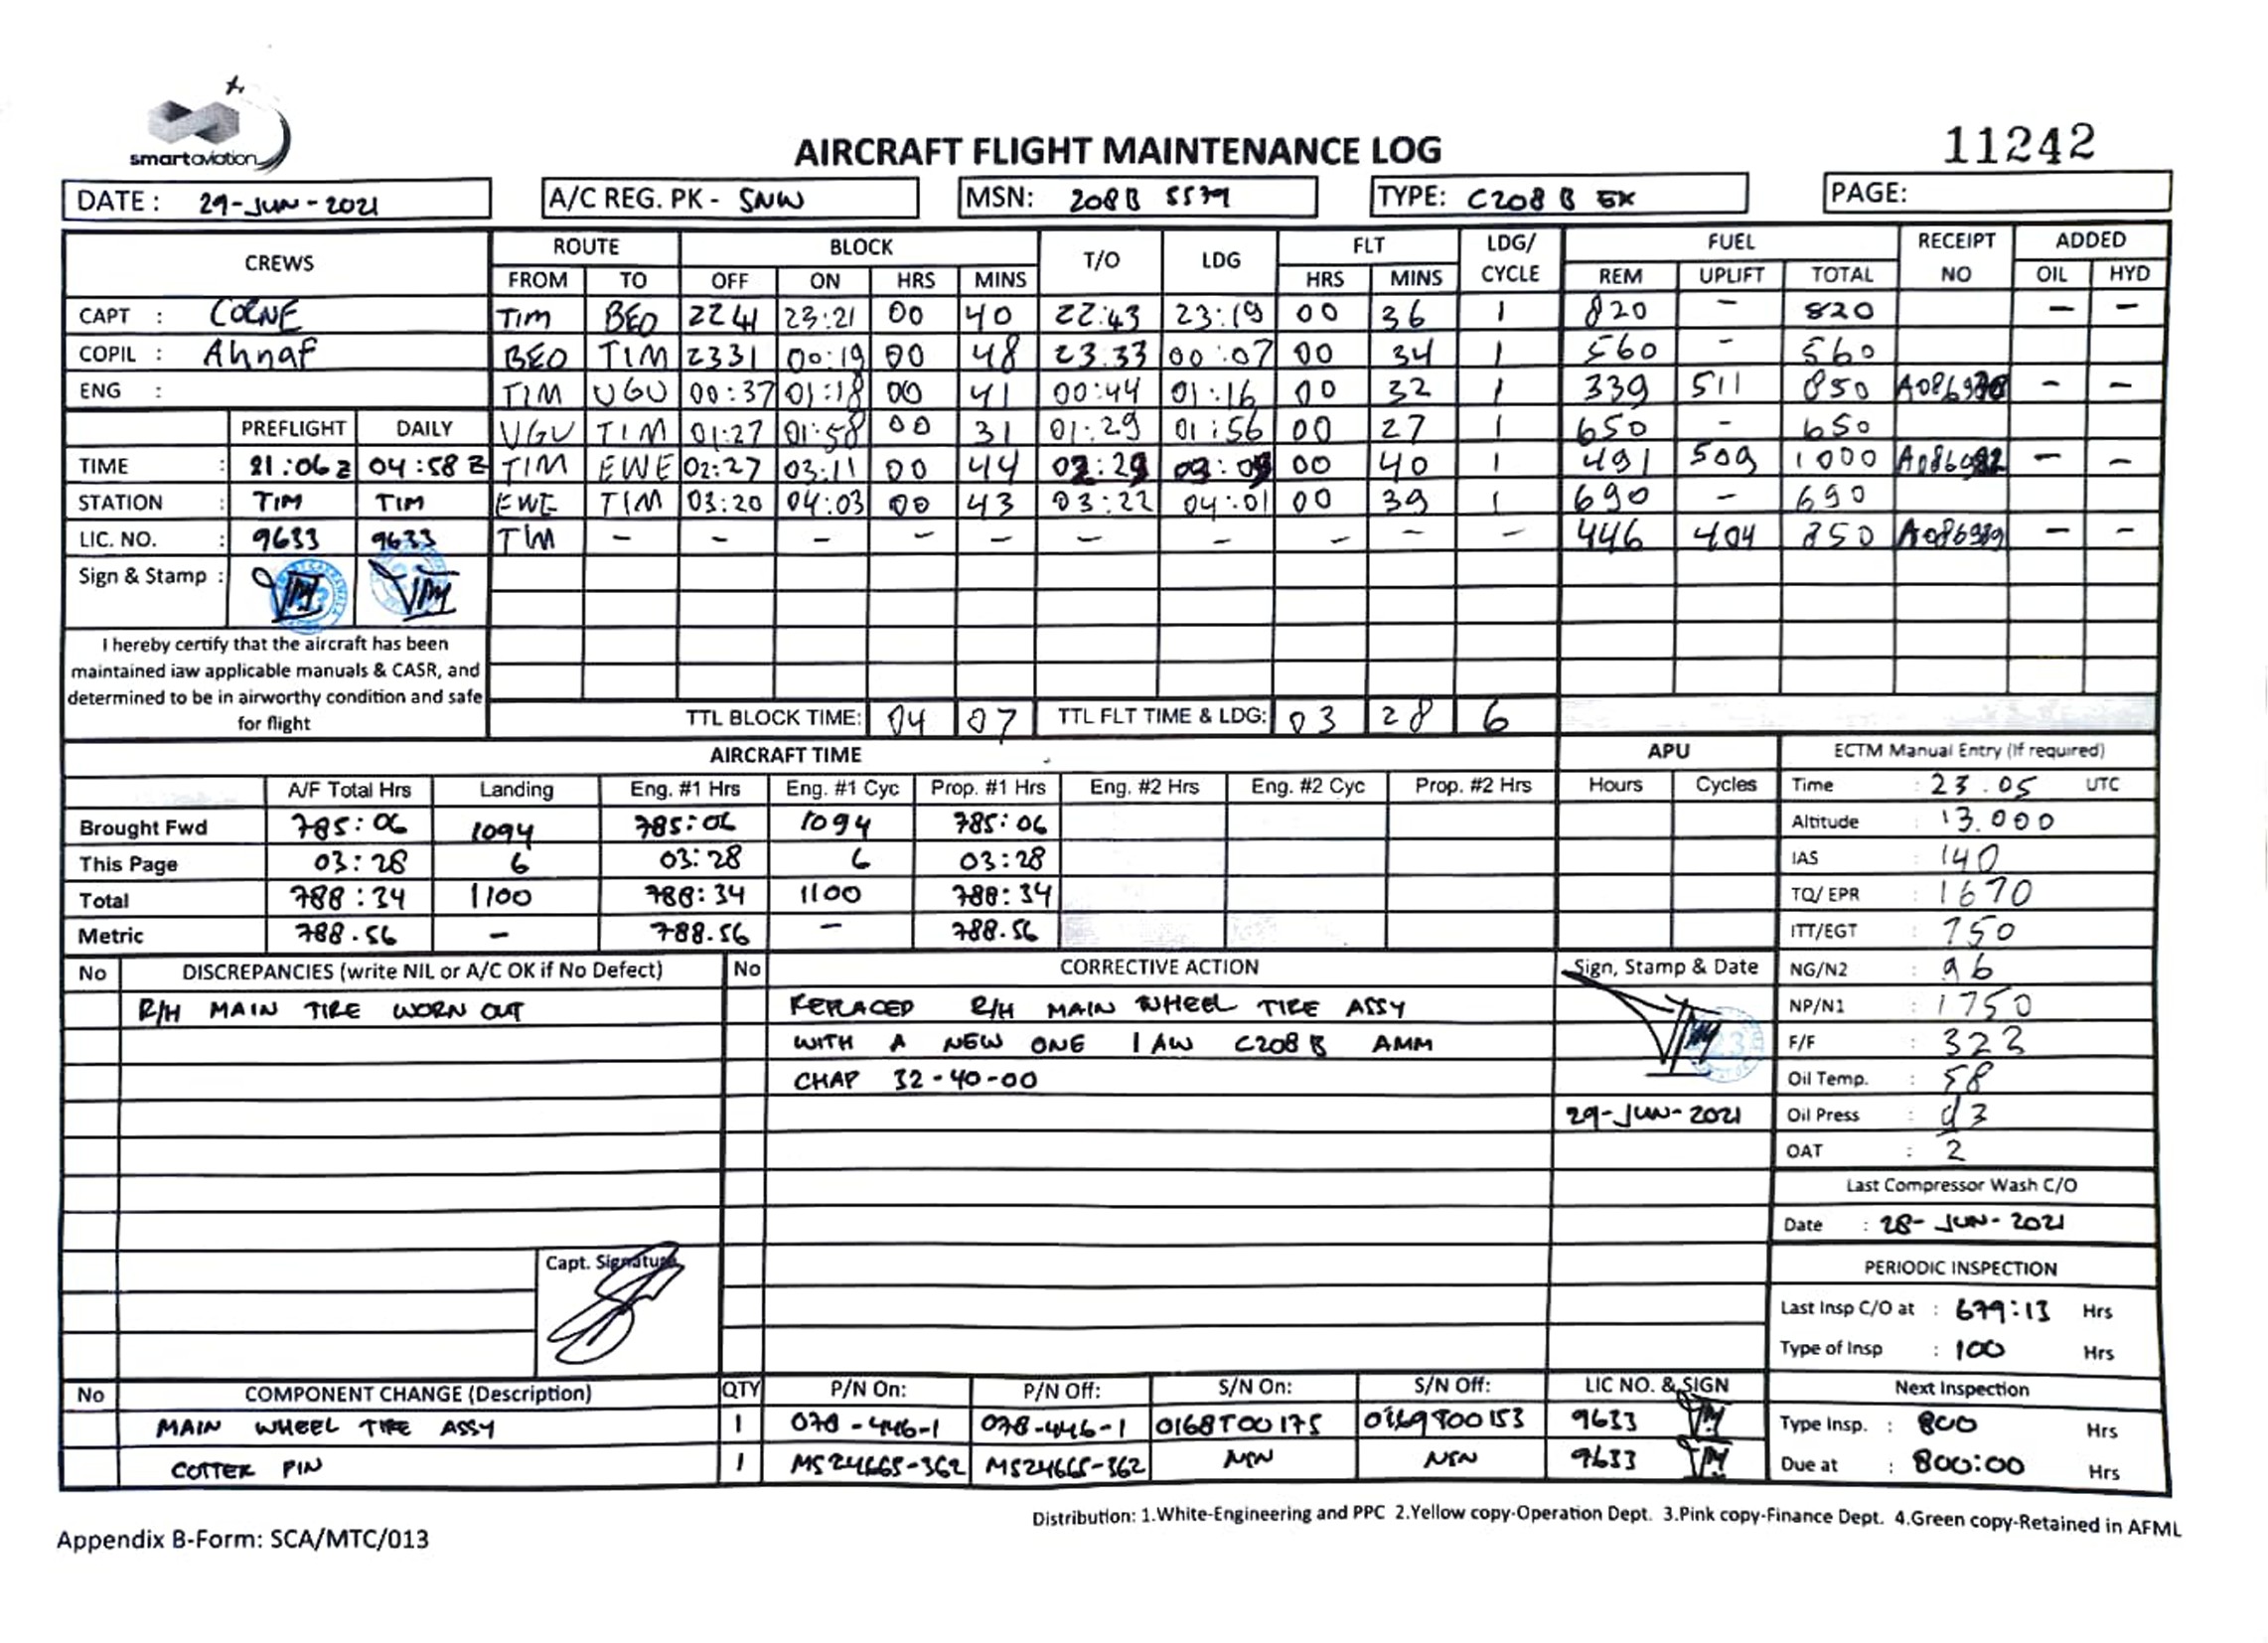 smartaviation
AIRCRAFT FLIGHT MAINTENANCE LOG
11242
DATE : 29-JUN-2021 A/C REG. PK - SNW MSN: 208B 5579 TYPE: C208 B EX PAGE:
CREWS ROUTE BLOCK T/O LDG FLT LDG/ CYCLE FUEL RECEIPT NO ADDED
FROM TO OFF ON HRS MINS HRS MINS REM UPLIFT TOTAL OIL HYD
CAPT : CORNE TIM BEO 2241 23:21 00 40 22:43 23:19 00 36 1 820 - 820 - -
COPIL : Ahnaf BEO TIM 2331 00:19 00 48 23.33 00:07 00 34 1 560 - 560
ENG : TIM UGU 00:37 01:18 00 41 00:44 01:16 00 32 1 339 511 850 - -
PREFLIGHT DAILY UGU TIM 01:27 01:58 00 31 01:29 01:56 00 27 1 650 - 650
TIME : 21:06 Z 04:58 Z TIM EWE 02:27 03:11 00 44 02:29 03:09 00 40 1 491 509 1000 - -
STATION : TIM TIM EWE TIM 03:20 04:03 00 43 03:22 04:01 00 39 1 690 - 690
LIC. NO. : 9633 9633 TIM - - - - - - - - - - 446 404 850 A086989 - -
Sign & Stamp :
I hereby certify that the aircraft has been
maintained iaw applicable manuals & CASR, and
determined to be in airworthy condition and safe
for flight
TTL BLOCK TIME: 04 07 TTL FLT TIME & LDG: 03 28 6
AIRCRAFT TIME APU ECTM Manual Entry (If required)
A/F Total Hrs Landing Eng. #1 Hrs Eng. #1 Cyc Prop. #1 Hrs Eng. #2 Hrs Eng. #2 Cyc Prop. #2 Hrs Hours Cycles Time : 23.05 UTC
Brought Fwd 785:06 1094 785:06 1094 785:06 Altitude : 13.000
This Page 03:28 6 03:28 6 03:28 IAS : 140
Total 788:34 1100 788:34 1100 788:34 TQ/ EPR : 1670
Metric 788.56 - 788.56 - 788.56 ITT/EGT : 750
No DISCREPANCIES (write NIL or A/C OK if No Defect) No CORRECTIVE ACTION Sign, Stamp & Date NG/N2 : 96
R/H MAIN TIRE WORN OUT REPLACED R/H MAIN WHEEL TIRE ASSY NP/N1 : 1750
WITH A NEW ONE IAW C208 B AMM F/F : 322
CHAP 32-40-00 Oil Temp. : 58
29-JUN-2021 Oil Press : 93
OAT : 2
Last Compressor Wash C/O
Date : 28-JUN-2021
Capt. Signature
PERIODIC INSPECTION
Last Insp C/O at : 679:13 Hrs
Type of Insp : 100 Hrs
No COMPONENT CHANGE (Description) QTY P/N On: P/N Off: S/N On: S/N Off: LIC NO. & SIGN Next Inspection
MAIN WHEEL TIRE ASSY 1 078-446-1 078-446-1 0168T00175 9633 Type Insp. : 800 Hrs
COTTER PIN 1 MS24665-362 MS24665-362 NSN NSN 9633 Due at : 800:00 Hrs
Distribution: 1.White-Engineering and PPC 2.Yellow copy-Operation Dept. 3.Pink copy-Finance Dept. 4.Green copy-Retained in AFML
Appendix B-Form: SCA/MTC/013